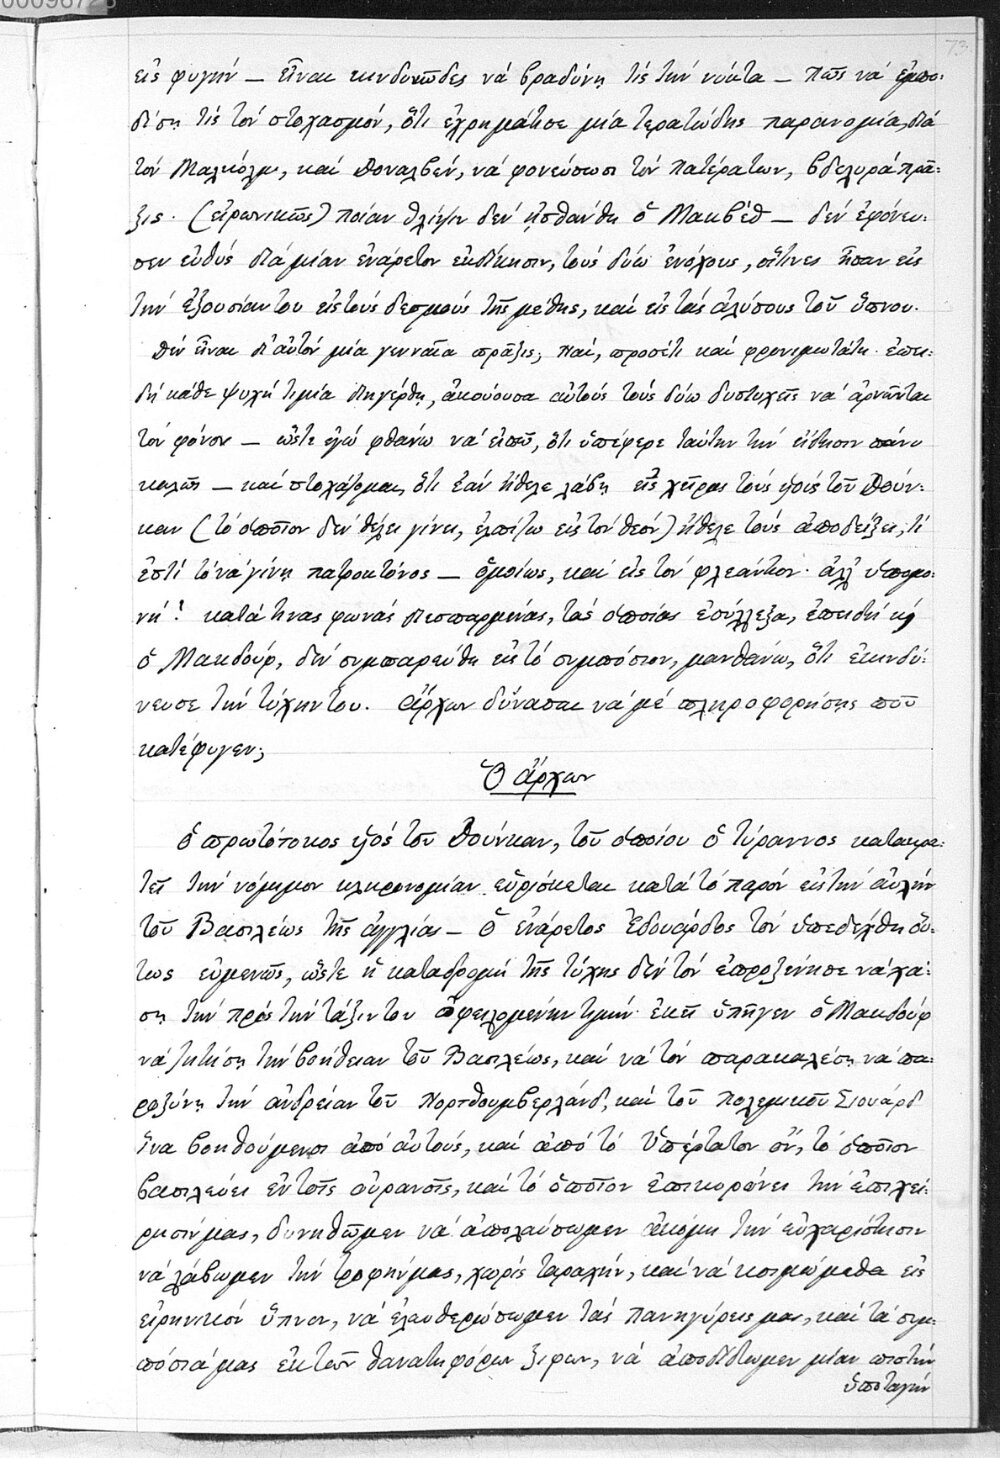 00096723
73
εἰς φυγήν — εἶναι κινδυνῶδες νά βραδύνῃ τις τήν νύκτα — πῶς νά ἐμπο-
δίσῃ τις τόν στοχασμόν, ὅτι ἐχρημάτισε μία τερατώδης παρανομία, διά
τόν Μαλκόλμ, καί Δοναλβέν, νά φονεύσωσι τόν πατέρατων, βδελυρά πρᾶ-
ξις. (εἰρωνικῶς) ποίαν θλίψιν δέν ᾐσθάνθη ὁ Μακβέθ — δέν ἐφόνευ-
σεν εὐθύς διά μίαν ἐνάρετον ἐκδίκησιν, τούς δύω ἐνόχους, οἵτινες ἦσαν εἰς
τήν ἐξουσίαν του εἰς τούς δεσμούς τῆς μέθης, καί εἰς τάς ἁλύσους τοῦ ὕπνου.
Δέν εἶναι δι' αὐτόν μία γενναῖα πρᾶξις; Ναί, προσέτι καί φρονιμωτάτη. ἐπει-
δή κάθε ψυχή τιμία ἠγέρθη, ἀκούουσα αὐτούς τούς δύω δυστυχεῖς νά ἀρνῶνται
τόν φόνον — ὥστε ἐγώ φθάνω νά εἰπῶ, ὅτι ὑπέφερε ταύτην τήν εἴδησιν πάνυ
καλῶς — καί στοχάζομαι, ὅτι ἐάν ἤθελε λάβῃ εἰς χεῖρας τούς υἱούς τοῦ Δούν-
καν (τό ὁποῖον δέν θέλει γίνει, ἐλπίζω εἰς τόν θεόν) ἤθελε τούς ἀποδείξει, τί
ἐστί τό νά γίνῃ πατροκτόνος — ὁμοίως, καί εἰς τόν Φλεάνκον. ἀλλ' ὑπομο-
νή! κατά τινας φωνάς διεσπαρμένας, τάς ὁποίας ἐσύλλεξα, ἐπειδή καί
ὁ Μακδούφ, δέν συμπαρευρέθη εἰς τό συμπόσιον, μανθάνω, ὅτι ἐκινδύ-
νευσε τήν τύχην του. Ἄρχων δύνασαι νά μέ πληροφορήσῃς ποῦ
κατέφυγεν;
Ὁ ἄρχων
Ὁ πρωτότοκος υἱός τοῦ Δούνκαν, τοῦ ὁποίου ὁ τύραννος κατακρα-
τεῖ τήν νόμιμον κληρονομίαν εὑρίσκεται κατά τό παρόν εἰς τήν αὐλήν
τοῦ Βασιλέως τῆς ἀγγλίας — Ὁ ἐνάρετος Ἐδουάρδος τόν ὑπεδέχθη οὕ-
τως εὐμενῶς, ὥστε ἡ καταδρομή τῆς τύχης δέν τόν ἐπροξένησε νά χά-
σῃ τήν πρός τήν τάξιν του ὀφειλομένην τιμήν. ἐκεῖ ὑπῆγεν ὁ Μακδούφ
νά ζητήσῃ τήν βοήθειαν τοῦ Βασιλέως, καί νά τόν παρακαλέσῃ νά πα-
ροξύνῃ τήν ἀνδρείαν τοῦ Νορτθουμβερλάνδ, καί τοῦ πολεμικοῦ Σιουάρδ
ἵνα βοηθούμενοι ἀπό αὐτούς, καί ἀπό τό ὑπέρτατον ὄν, τό ὁποῖον
βασιλεύει ἐν τοῖς οὐρανοῖς, καί τό ὁποῖον ἐπικυρώνει τήν ἐπιχεί-
ρησίν μας, δυνηθῶμεν νά ἀπολαύσωμεν ἀκόμη τήν εὐχαρίστησιν
νά λάβωμεν τήν τροφήν μας, χωρίς ταραχήν, καί νά κοιμώμεθα εἰς
εἰρηνικόν ὕπνον, νά ἐλευθερώσωμεν τάς πανηγύρεις μας, καί τά συμ-
πόσιά μας ἐκ τῶν θανατηφόρων ξιφῶν, νά ἀποδίδωμεν μίαν πιστήν
ὑποταγήν